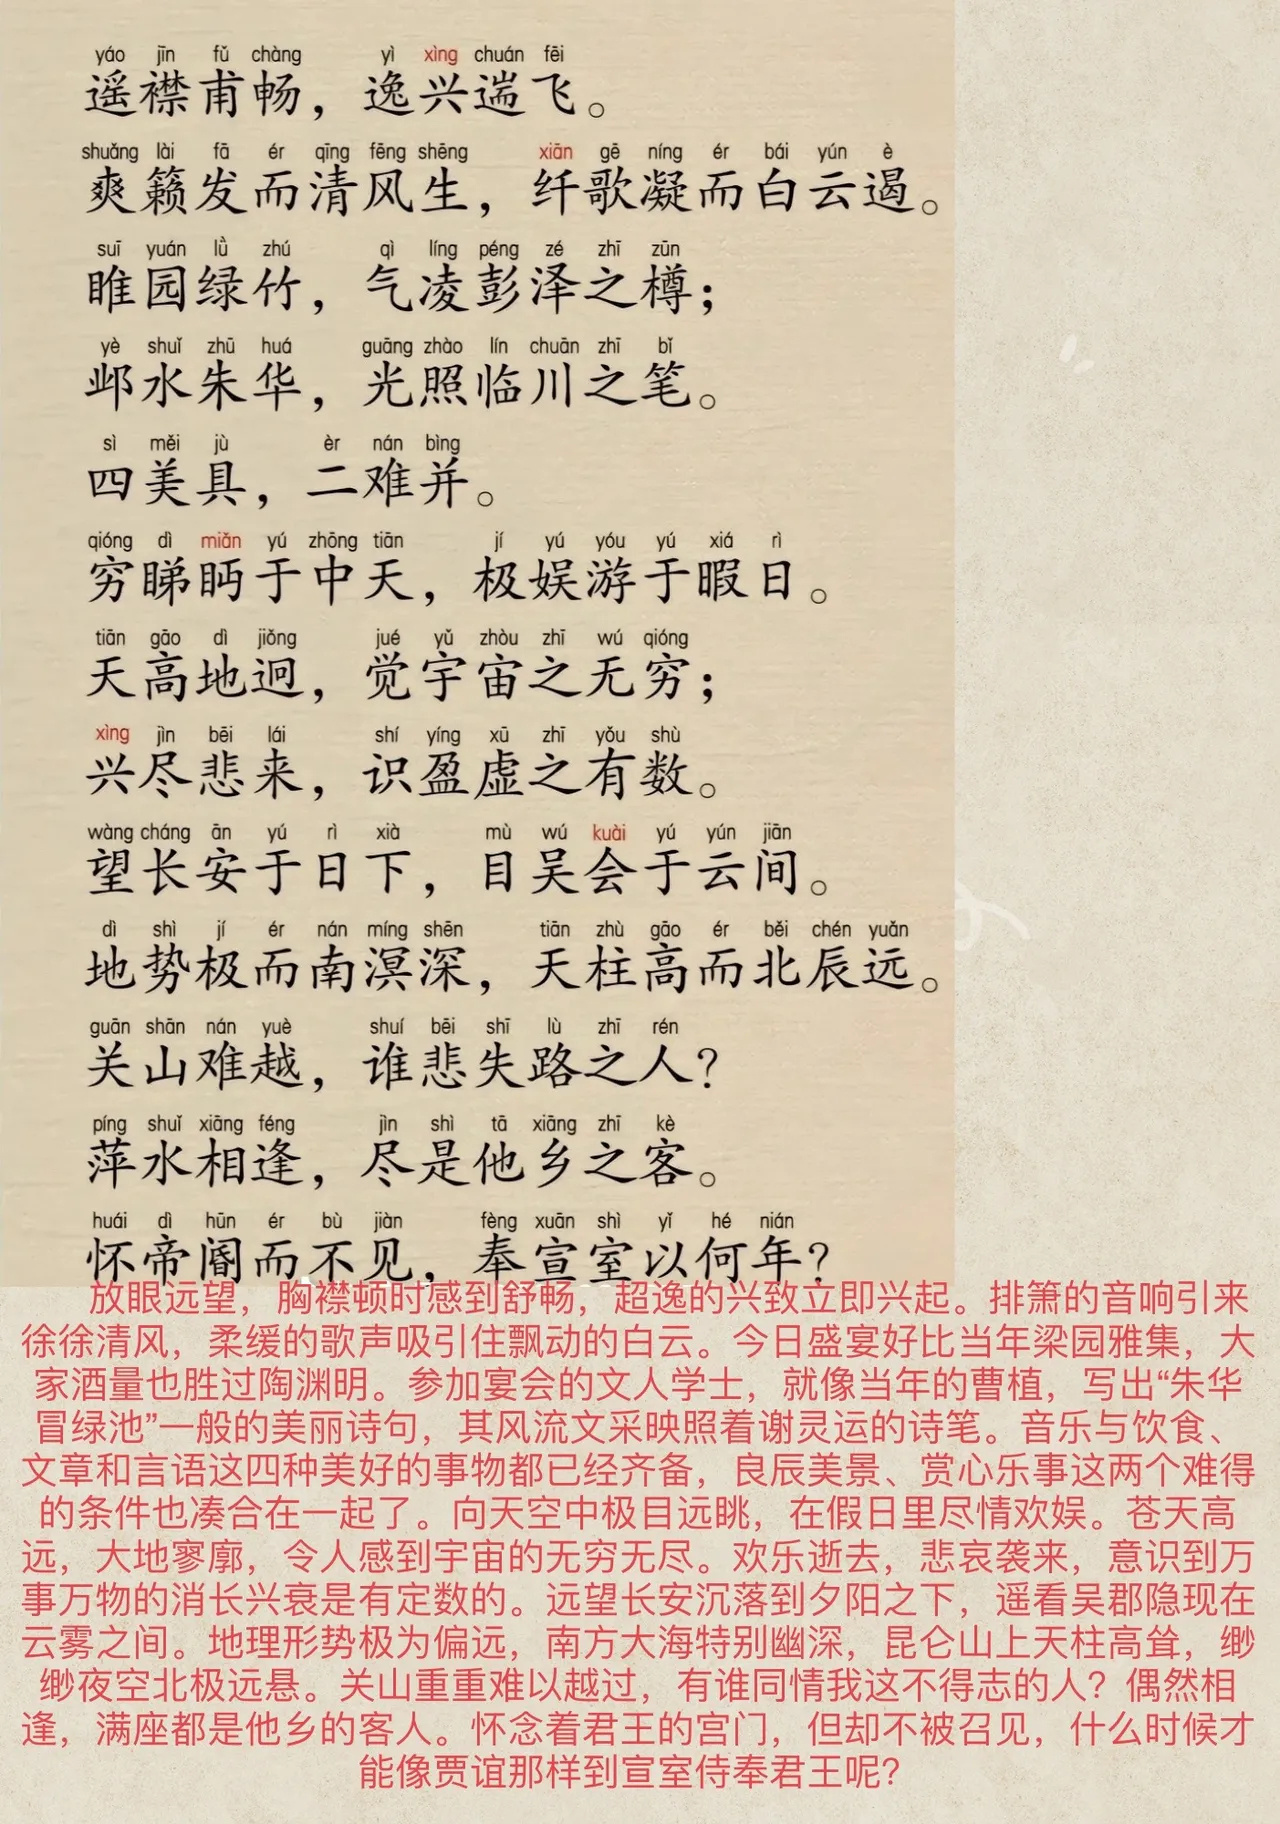 yáo jīn fǔ chàng yì xìng chuán fēi
遥襟甫畅，逸兴遄飞。
shuǎng lài fā ér qīng fēng shēng xiān gē níng ér bái yún è
爽籁发而清风生，纤歌凝而白云遏。
suī yuán lǜ zhú qì líng péng zé zhī zūn
睢园绿竹，气凌彭泽之樽；
yè shuǐ zhū huá guāng zhào lín chuān zhī bǐ
邺水朱华，光照临川之笔。
sì měi jù èr nán bìng
四美具，二难并。
qióng dì miǎn yú zhōng tiān jí yú yóu yú xiá rì
穷睇眄于中天，极娱游于暇日。
tiān gāo dì jiǒng jué yǔ zhòu zhī wú qióng
天高地迥，觉宇宙之无穷；
xìng jìn bēi lái shí yíng xū zhī yǒu shù
兴尽悲来，识盈虚之有数。
wàng cháng ān yú rì xià mù wú kuài yú yún jiān
望长安于日下，目吴会于云间。
dì shì jí ér nán míng shēn tiān zhù gāo ér běi chén yuǎn
地势极而南溟深，天柱高而北辰远。
guān shān nán yuè shuí bēi shī lù zhī rén
关山难越，谁悲失路之人？
píng shuǐ xiāng féng jìn shì tā xiāng zhī kè
萍水相逢，尽是他乡之客。
huái dì hūn ér bù jiàn fèng xuān shì yǐ hé nián
怀帝阍而不见，奉宣室以何年？
放眼远望，胸襟顿时感到舒畅，超逸的兴致立即兴起。排箫的音响引来
徐徐清风，柔缓的歌声吸引住飘动的白云。今日盛宴好比当年梁园雅集，大
家酒量也胜过陶渊明。参加宴会的文人学士，就像当年的曹植，写出“朱华
冒绿池”一般的美丽诗句，其风流文采映照着谢灵运的诗笔。音乐与饮食、
文章和言语这四种美好的事物都已经齐备，良辰美景、赏心乐事这两个难得
的条件也凑合在一起了。向天空中极目远眺，在假日里尽情欢娱。苍天高
远，大地寥廓，令人感到宇宙的无穷无尽。欢乐逝去，悲哀袭来，意识到万
事万物的消长兴衰是有定数的。远望长安沉落到夕阳之下，遥看吴郡隐现在
云雾之间。地理形势极为偏远，南方大海特别幽深，昆仑山上天柱高耸，缈
缈夜空北极远悬。关山重重难以越过，有谁同情我这不得志的人？偶然相
逢，满座都是他乡的客人。怀念着君王的宫门，但却不被召见，什么时候才
能像贾谊那样到宣室侍奉君王呢？